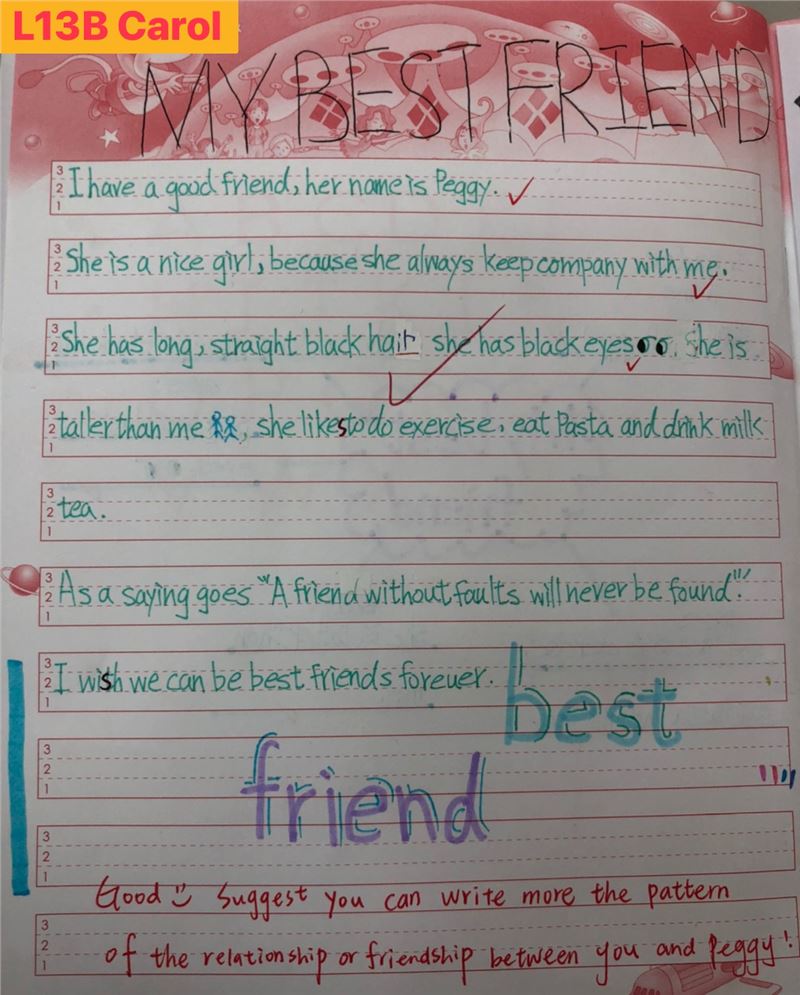 L13B Carol
MY BEST FRIEND
3
2
1
I have a good friend, her name is Peggy.
3
2
1
She is a nice girl, because she always keep company with me.
3
2
1
She has long, straight black hair she has black eyes. She is
3
2
1
taller than me, she likes to do exercise, eat Pasta and drink milk
3
2
1
tea.
3
2
1
As a saying goes "A friend without faults will never be found"!
3
2
1
I wish we can be best friends forever.
best
3
2
1
friend
3
2
1
Good Suggest you can write more the pattern
3
2
1
of the relationship or friendship between you and Peggy!